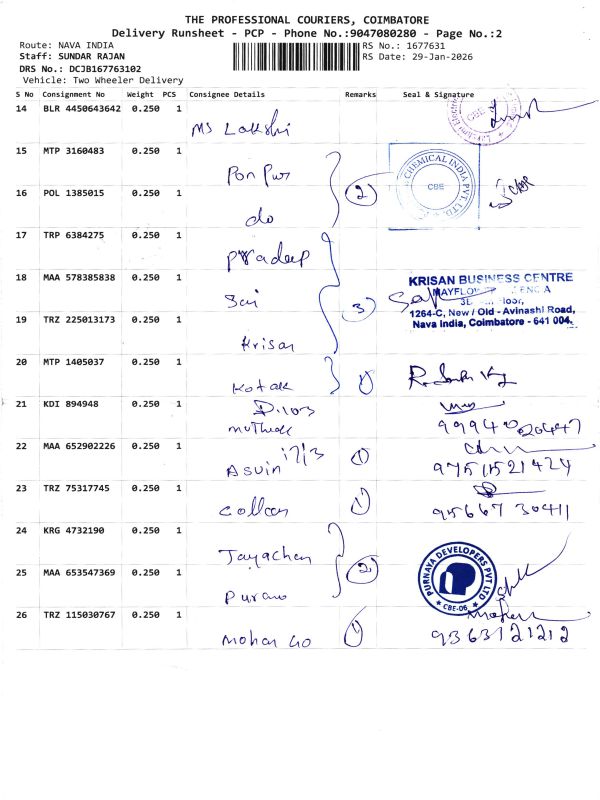 THE PROFESSIONAL COURIERS, COIMBATORE
Delivery Runsheet - PCP - Phone No.:9047080280 - Page No.:2
Route: NAVA INDIA
RS No.: 1677631
Staff: SUNDAR RAJAN
RS Date: 29-Jan-2026
DRS No.: DCJB167763102
Vehicle: Two Wheeler Delivery
S No Consignment No Weight PCS Consignee Details Remarks Seal & Signature
14 BLR 4450643642 0.250 1
MS Lakshi
CBE
15 MTP 3160483 0.250 1
Pon Pur
2
CHEMICAL INDIA PVT. LTD.
CBE
16 POL 1385015 0.250 1
do
17 TRP 6384275 0.250 1
Pradeep
18 MAA 578385838 0.250 1
Sai
3
KRISAN BUSINESS CENTRE
1264-C, New / Old - Avinashi Road,
Nava India, Coimbatore - 641 004.
19 TRZ 225013173 0.250 1
Krisan
20 MTP 1405037 0.250 1
Kotak
1
21 KDI 894948 0.250 1
D.103
99940 20447
22 MAA 652902226 0.250 1
Asvin
1
9751521424
23 TRZ 75317745 0.250 1
1
95667 30411
24 KRG 4732190 0.250 1
Jayachen
2
PURNAYA DEVELOPERS PVT LTD
CBE-06
25 MAA 653547369 0.250 1
Purano
26 TRZ 115030767 0.250 1
Mohan
1
9363121212